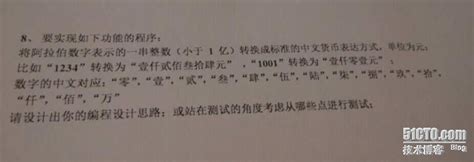 8、要实现如下功能的程序:
将阿拉伯数字表示的一串整数(小于1亿)转换成标准的中文货币表达方式,单位为元;
比如"1234"转换为"壹仟贰佰叁拾肆元","1001"转换为"壹仟零壹元";
数字的中文对应:"零","壹","贰","叁","肆","伍","陆","柒","捌","玖","拾",
"仟","佰","万"
请设计出你的编程设计思路;或站在测试的角度考虑从哪些点进行测试;
51CTO.com
技术博客 Blog